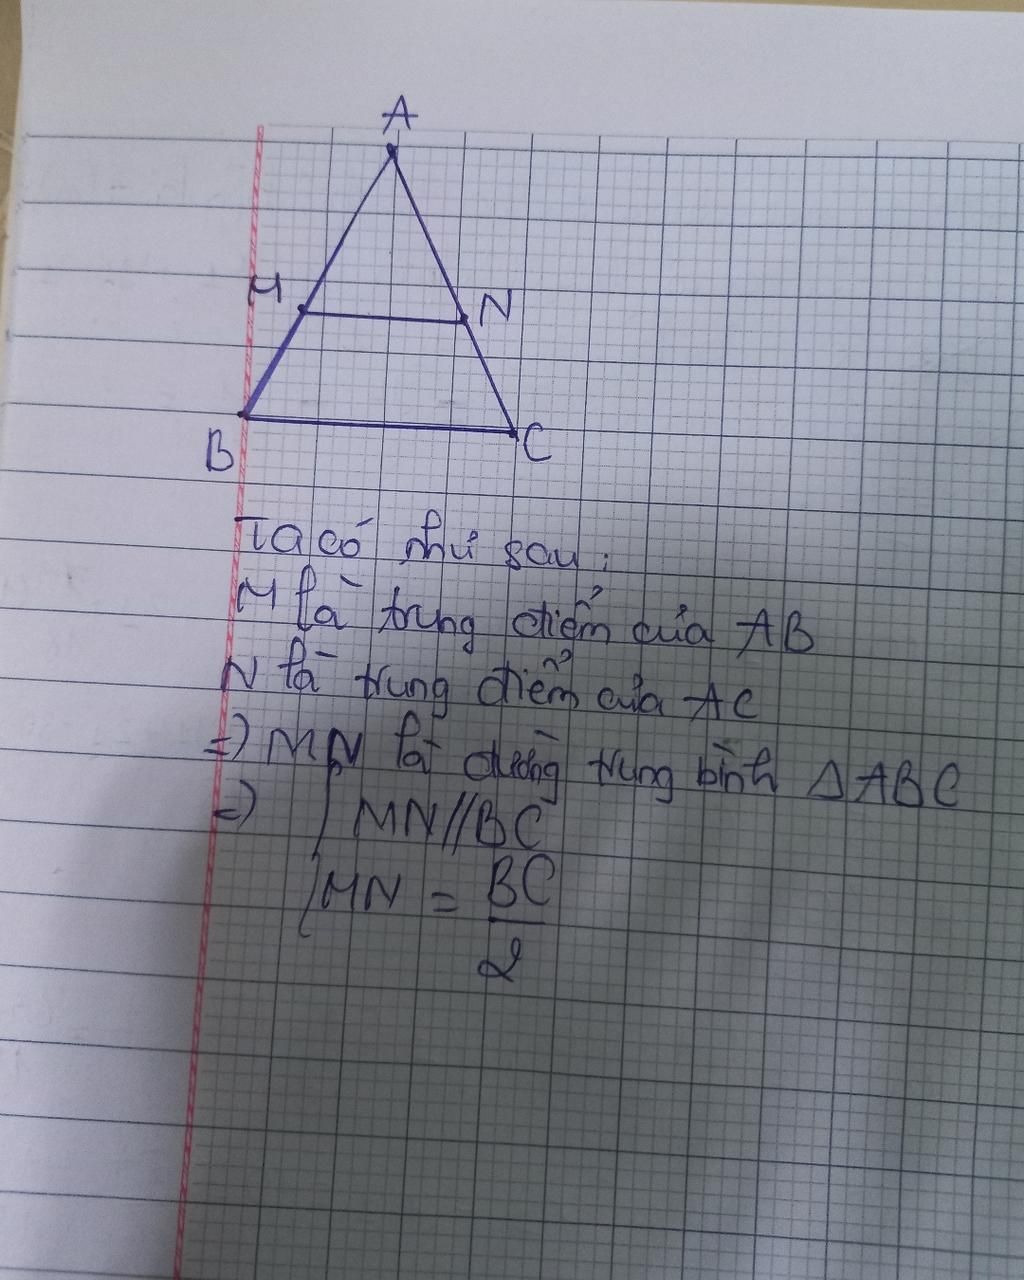 A
M
N
B
C
Ta có như sau:
M là trung điểm của AB
N là trung điểm của AC
=> MN là đường trung bình Δ ABC
=> MN // BC
MN = BC
2